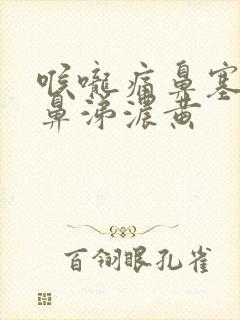 喉咙痛鼻塞
鼻涕浓黄
百翎眼孔雀